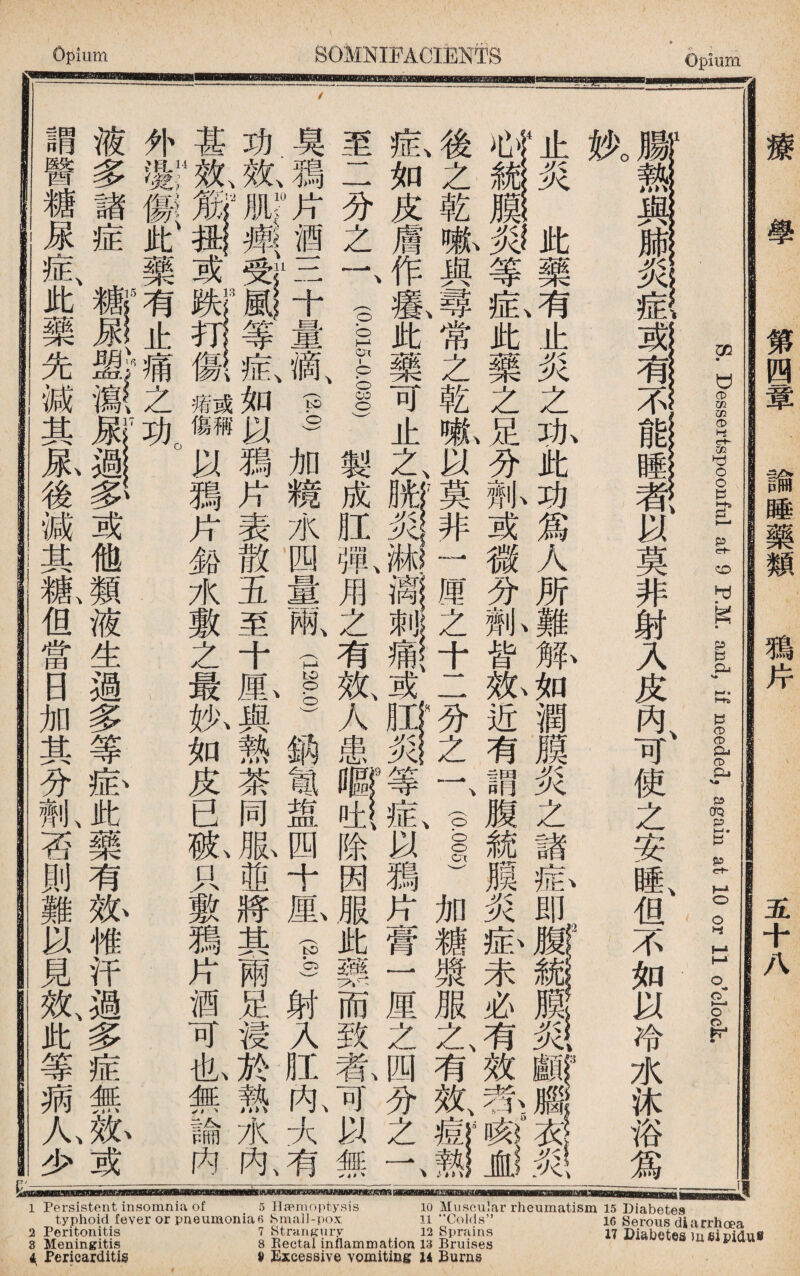 Opium SOMNIFACIENTS Opium
療學 第四章 論睡藥類 鴉片 五十八
S. Dessertspoonful at 9 P.M. and, if needed, again at 10 or 11 o'clock.
腸1熱與肺炎症、或有不能睡者、以莫非射入皮內、可使之安睡、但不如以冷水沐浴爲
妙。
止炎 此藥有止炎之功、此功爲人所難解、如潤膜炎之諸症、即腹2統膜炎、顱3腦衣炎、
心4統膜炎等症、此藥之足分劑、或微分劑、皆效、近有謂腹統膜炎症、未必有效者、咳5血
後之乾嗽、與尋常之乾嗽、以莫非一厘之十二分之一、(0.005) 加糖漿服之、有效、痘6熱
症、如皮膚作癢、此藥可止之、胱7炎淋漓刺痛、或肛8炎等症、以鴉片膏一厘之四分之一、
至二分之一、(0.015-0.030) 製成肛彈、用之有效、人患嘔9吐、除因服此藥而致者、可以無
臭鴉片酒三十量滴、(2.0) 加糨水四量兩、(120.0) 鈉氫塩四十厘、(2.6) 射入肛內、大有
功效、肌10痺、受11風等症、如以鴉片表散五至十厘、與熱茶同服、並將其兩足浸於熱水內、
甚效、筋12扭、或跌13打傷、或稱瘀傷 以鴉片鉛水敷之最妙、如皮已破、只敷鴉片酒可也、無論內
外湯14傷、此藥有止痛之功。
液多諸症 糖15尿、盟16瀉、尿17過多、或他類液生過多等症、此藥有效、惟汗過多症無效、或
謂醫糖尿症、此藥先減其尿、後減其糖、但當日加其分劑、否則難以見效、此等病人、少
1 Persistent insomnia of typhoid fever or pneumonia
2 Peritonitis
3 Meningitis
4 Pericarditis
5 Hæmoptysis
6 Small-pox
7 Strangury
8 Rectal inflammation
9 Excessive vomiting
10 Muscular rheumatism
11 "Colds"
12 Sprains
13 Bruises
14 Burns
15 Diabetes
16 Serous diarrhœa
17 Diabetes insipidus